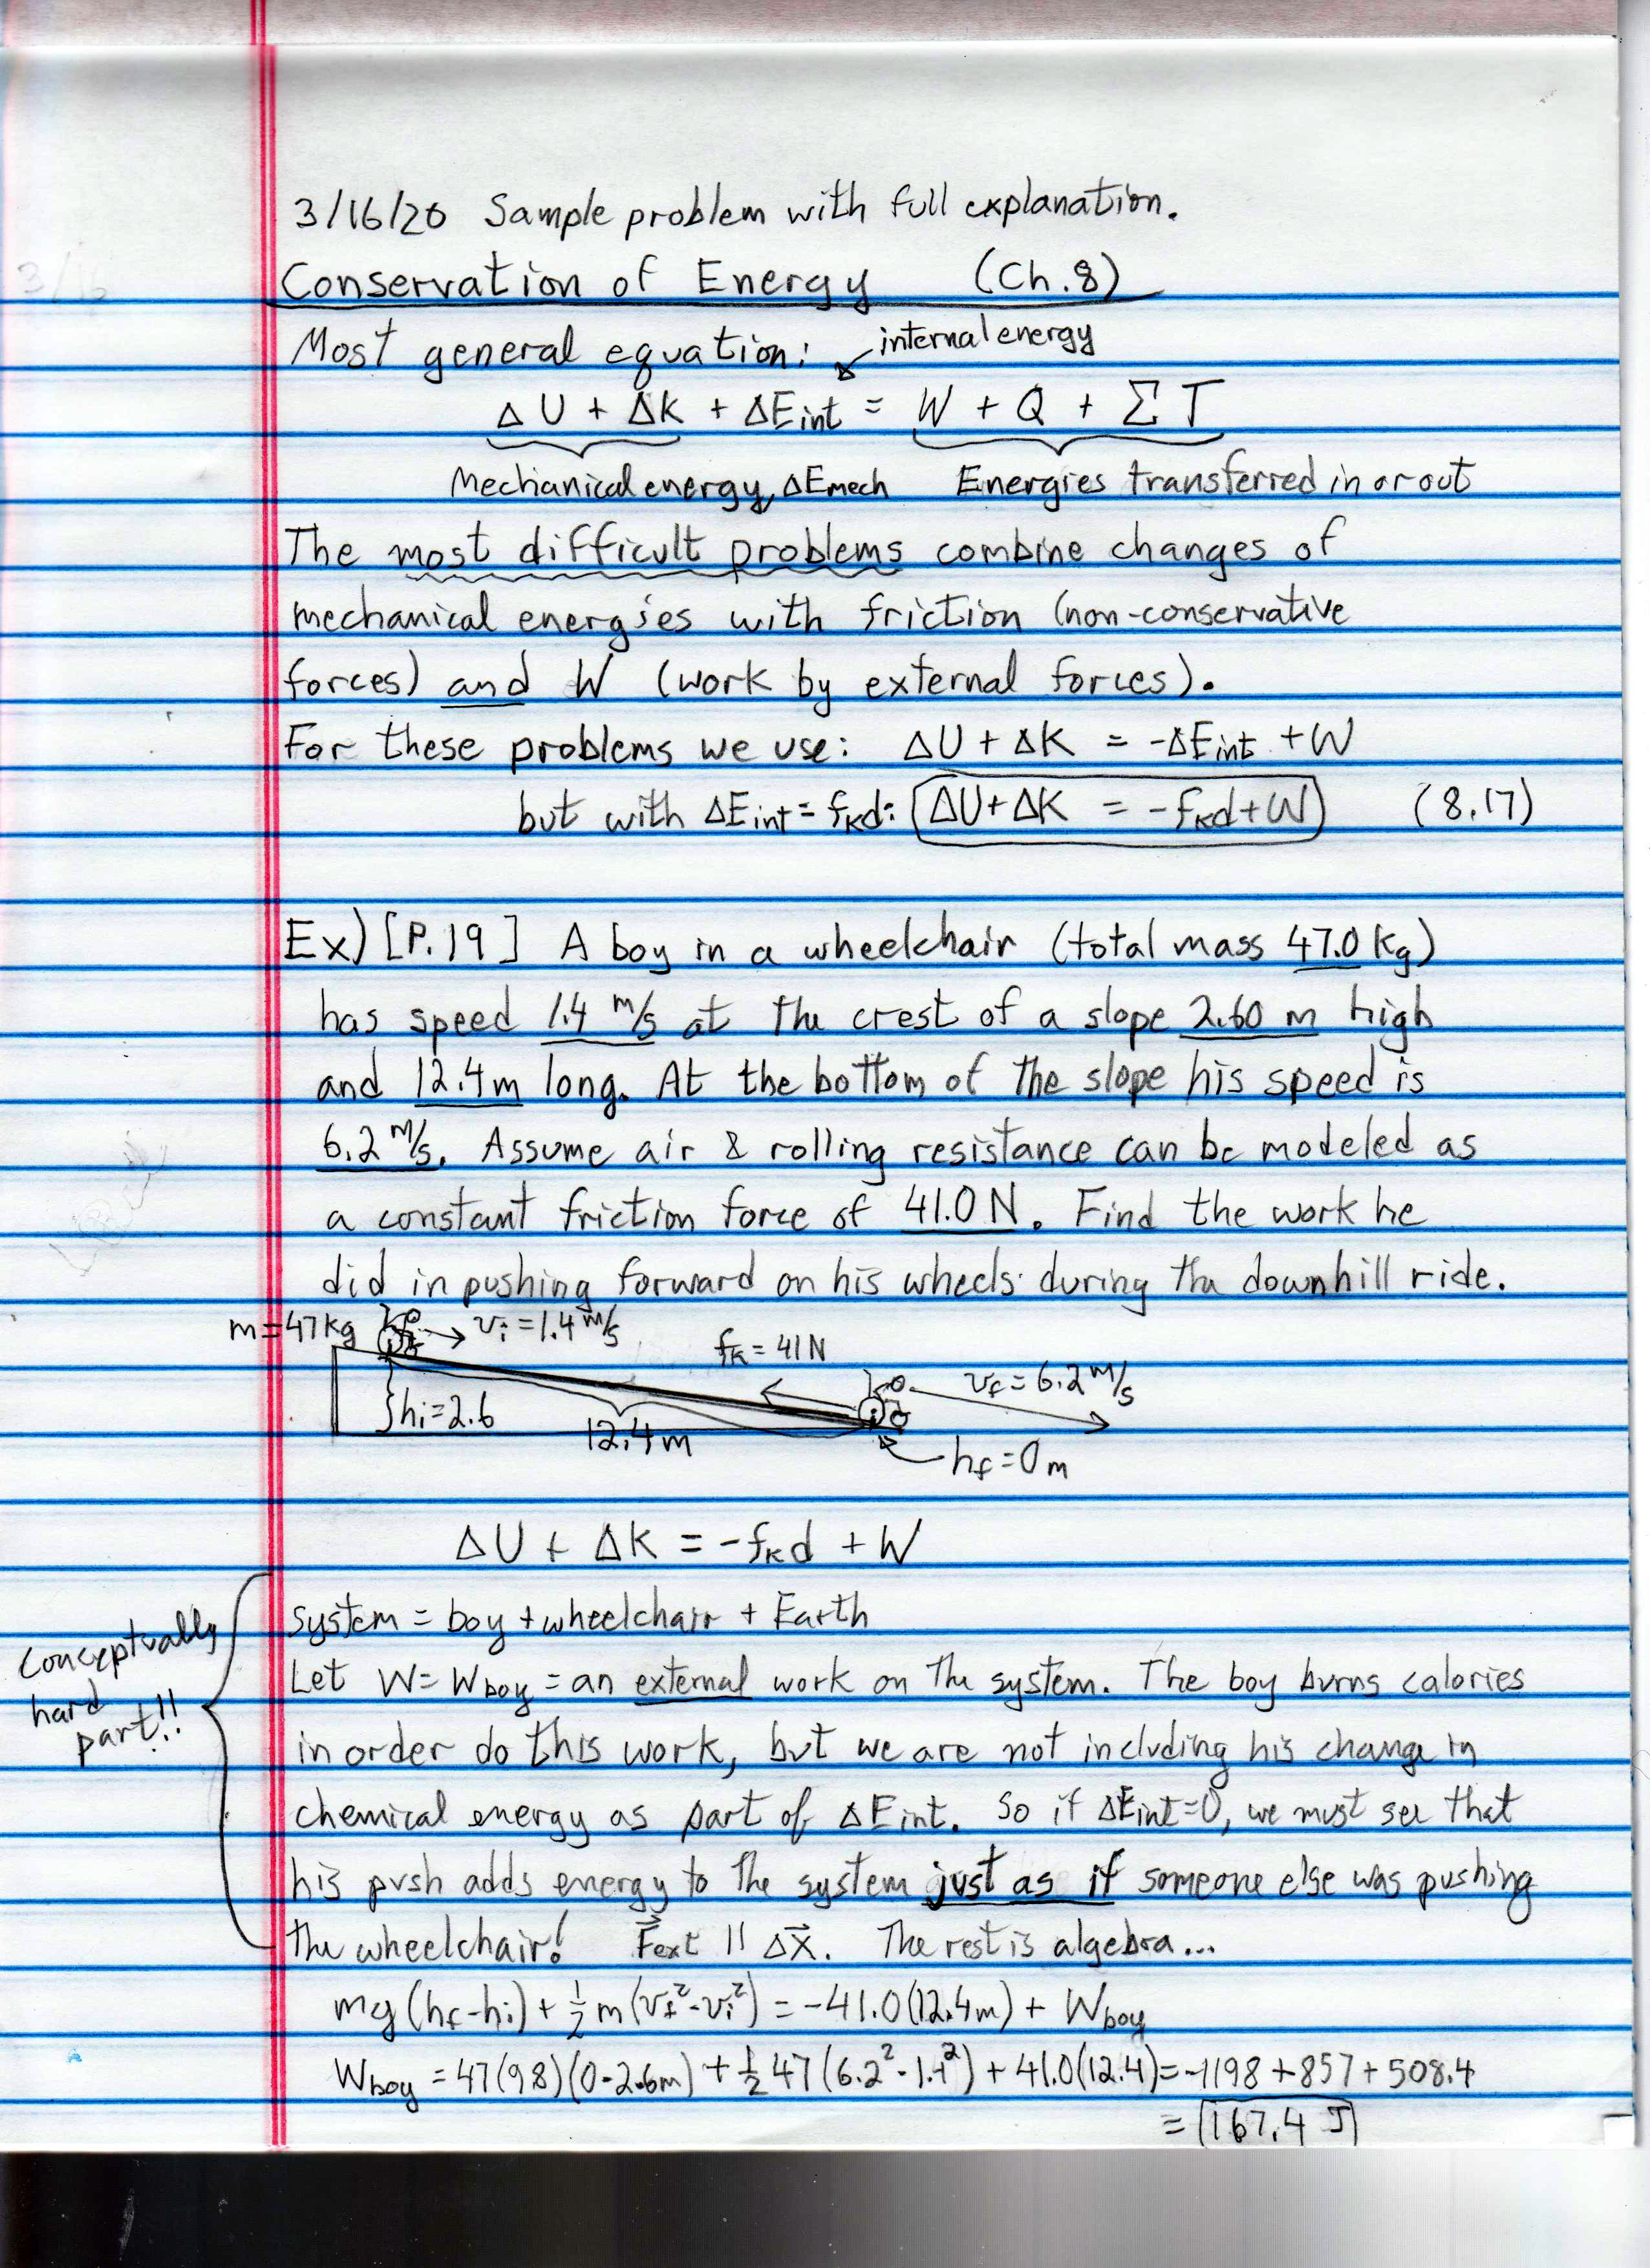 3/16/20 Sample problem with full explanation.
Conservation of Energy (Ch.8)
Most general equation: internal energy
ΔU + ΔK + ΔEint = W + Q + ΣT
Mechanical energy, ΔEmech Energies transferred in or out
The most difficult problems combine changes of
mechanical energies with friction (non-conservative
forces) and W (work by external forces).
For these problems we use: ΔU + ΔK = -ΔEint + W
but with ΔEint = fkd: ΔU+ΔK = -fkd+W (8.17)
Ex) [P.19] A boy in a wheelchair (total mass 47.0 kg)
has speed 1.4 m/s at the crest of a slope 2.60 m high
and 12.4m long. At the bottom of the slope his speed is
6.2 m/s. Assume air & rolling resistance can be modeled as
a constant friction force of 41.0 N. Find the work he
did in pushing forward on his wheels during the downhill ride.
m=47kg vi=1.4 m/s
fk=41N
vf=6.2 m/s
hi=2.6
12.4m
hf=0m
ΔU + ΔK = -fkd + W
System = boy + wheelchair + Earth
conceptually hard part!!
Let W= Wboy = an external work on the system. The boy burns calories
in order do this work, but we are not including his change in
chemical energy as part of ΔEint. So if ΔEint=0, we must see that
his push adds energy to the system just as if someone else was pushing
the wheelchair! F⃗ext || Δx⃗. The rest is algebra...
mg(hf-hi) + ½m(vf²-vi²) = -41.0(12.4m) + Wboy
Wboy = 47(9.8)(0-2.6m) + ½ 47(6.2²-1.4²) + 41.0(12.4)= -1198 +857 + 508.4
= 167.4 J